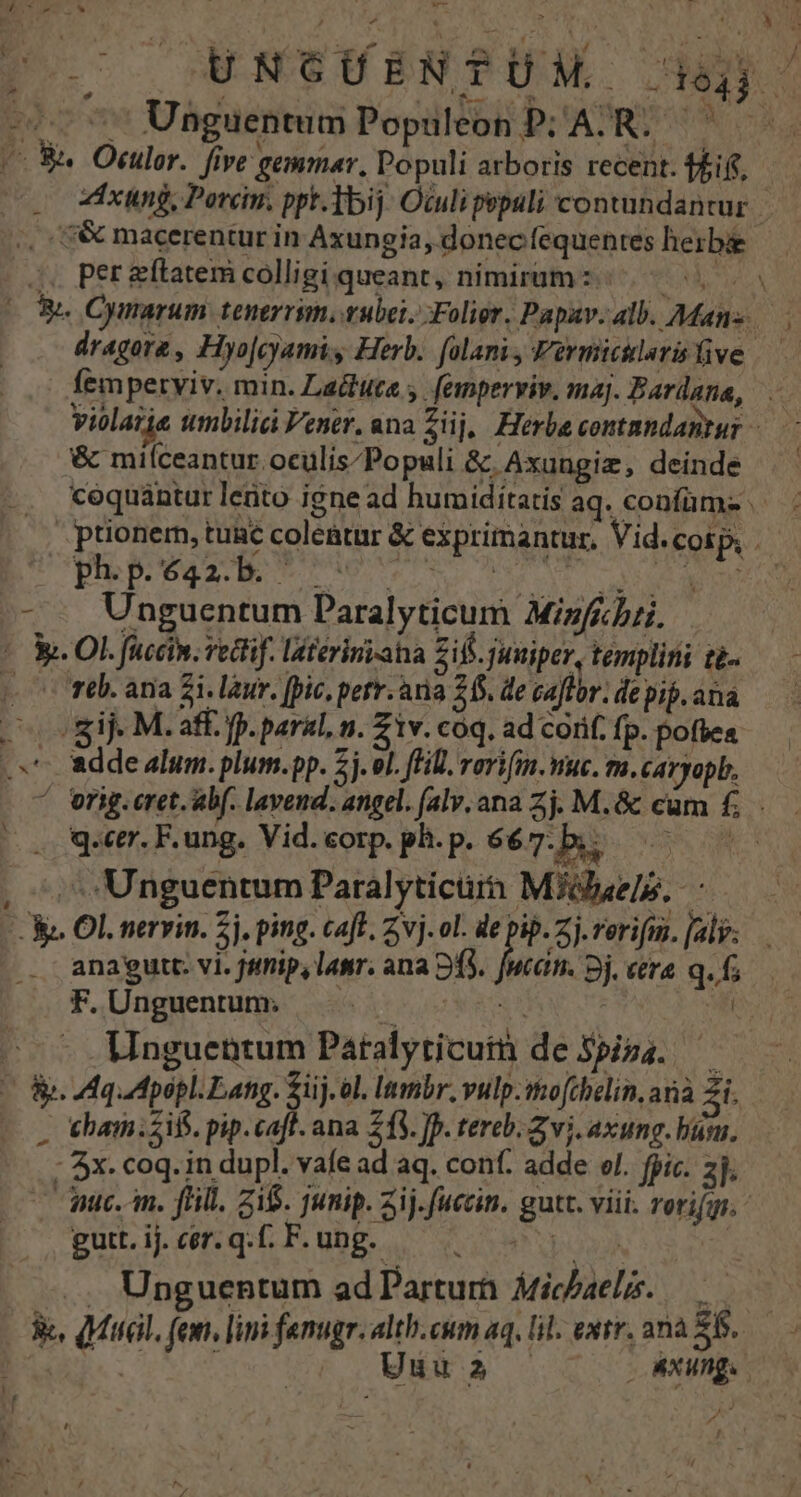 UNGUENTUM.
Unguentum Populeon P. A. R.
℞. Oculor. ſive gemmar. Populi arboris recent. ℔iß,
Axung. Porcin. ppt. ℔ij. Oculi populi contundantur
& macerentur in Axungia, donec ſequentes herbæ
per æſtatem colligi queant, nimirum:
℞. Cymarum tenerrim. rubei. Folior. Papav. alb. Man-
dragoræ, Hyoſcyami, Herb. ſolani, Vermicularis ſive
ſemperviv. min. Lactuca, ſemperviv. maj. Bardana,
violariæ umbilici Vener. ana ℥iij. Herba contundantur
& miſceantur oculis Populi & Axungiæ, deinde
coquantur lento igne ad humiditatis aq. conſum-
ptionem, tunc colentur & exprimantur. Vid. corp.
ph. p. 642. b.
Unguentum Paralyticum Minſichti.
℞. Ol. ſuccin. rectif. lateriniana ℥iß. juniper, templini te-
reb. ana ℥i. laur. ſpic. petr. ana ℥ß. de caſtor. de pip. ana
ʒij. M. aff. ſp. paral. n. ℥iv. coq. ad conſ. ſp. poſtea
adde alum. plum. pp. ℥j. ol. ſtill. roriſm. nuc. m. caryoph.
orig. cret. abſ. lavend. angel. ſalv. ana ʒj. M. & cum ſ.
q. cer. F. ung. Vid. corp. ph. p. 667. b.
Unguentum Paralyticum Michaelis.
℞. Ol. nervin. ℥j. ping. caſt. ʒvj. ol. de pip. ʒj. roriſm. ſalv.
ana gutt. vi. junip, laur. ana ℈ß. ſuccin. ℈j. cera q. ſ.
F. Unguentum.
Unguentum Paralyticum de Spina.
℞. Aq. Apopl. Lang. ℥iij. ol. lumbr. vulp. moſchelin. ana ℥i.
cham. ℥iß. pip. caſt. ana ℥ß. ſp. tereb. ʒvj. axung. hum.
℥x. coq. in dupl. vaſe ad aq. conſ. adde ol. ſpic. ʒj.
nuc. m. ſtill. ʒiß. junip. ʒij. ſuccin. gutt. viii. roriſm.
gutt. ij. cer. q. ſ. F. ung.
Unguentum ad Partum Michaelis.
℞. Mucil. ſem. lini fænugr. alth. cum aq. lil. extr. ana ℥ß.
Uuu 2 axung.